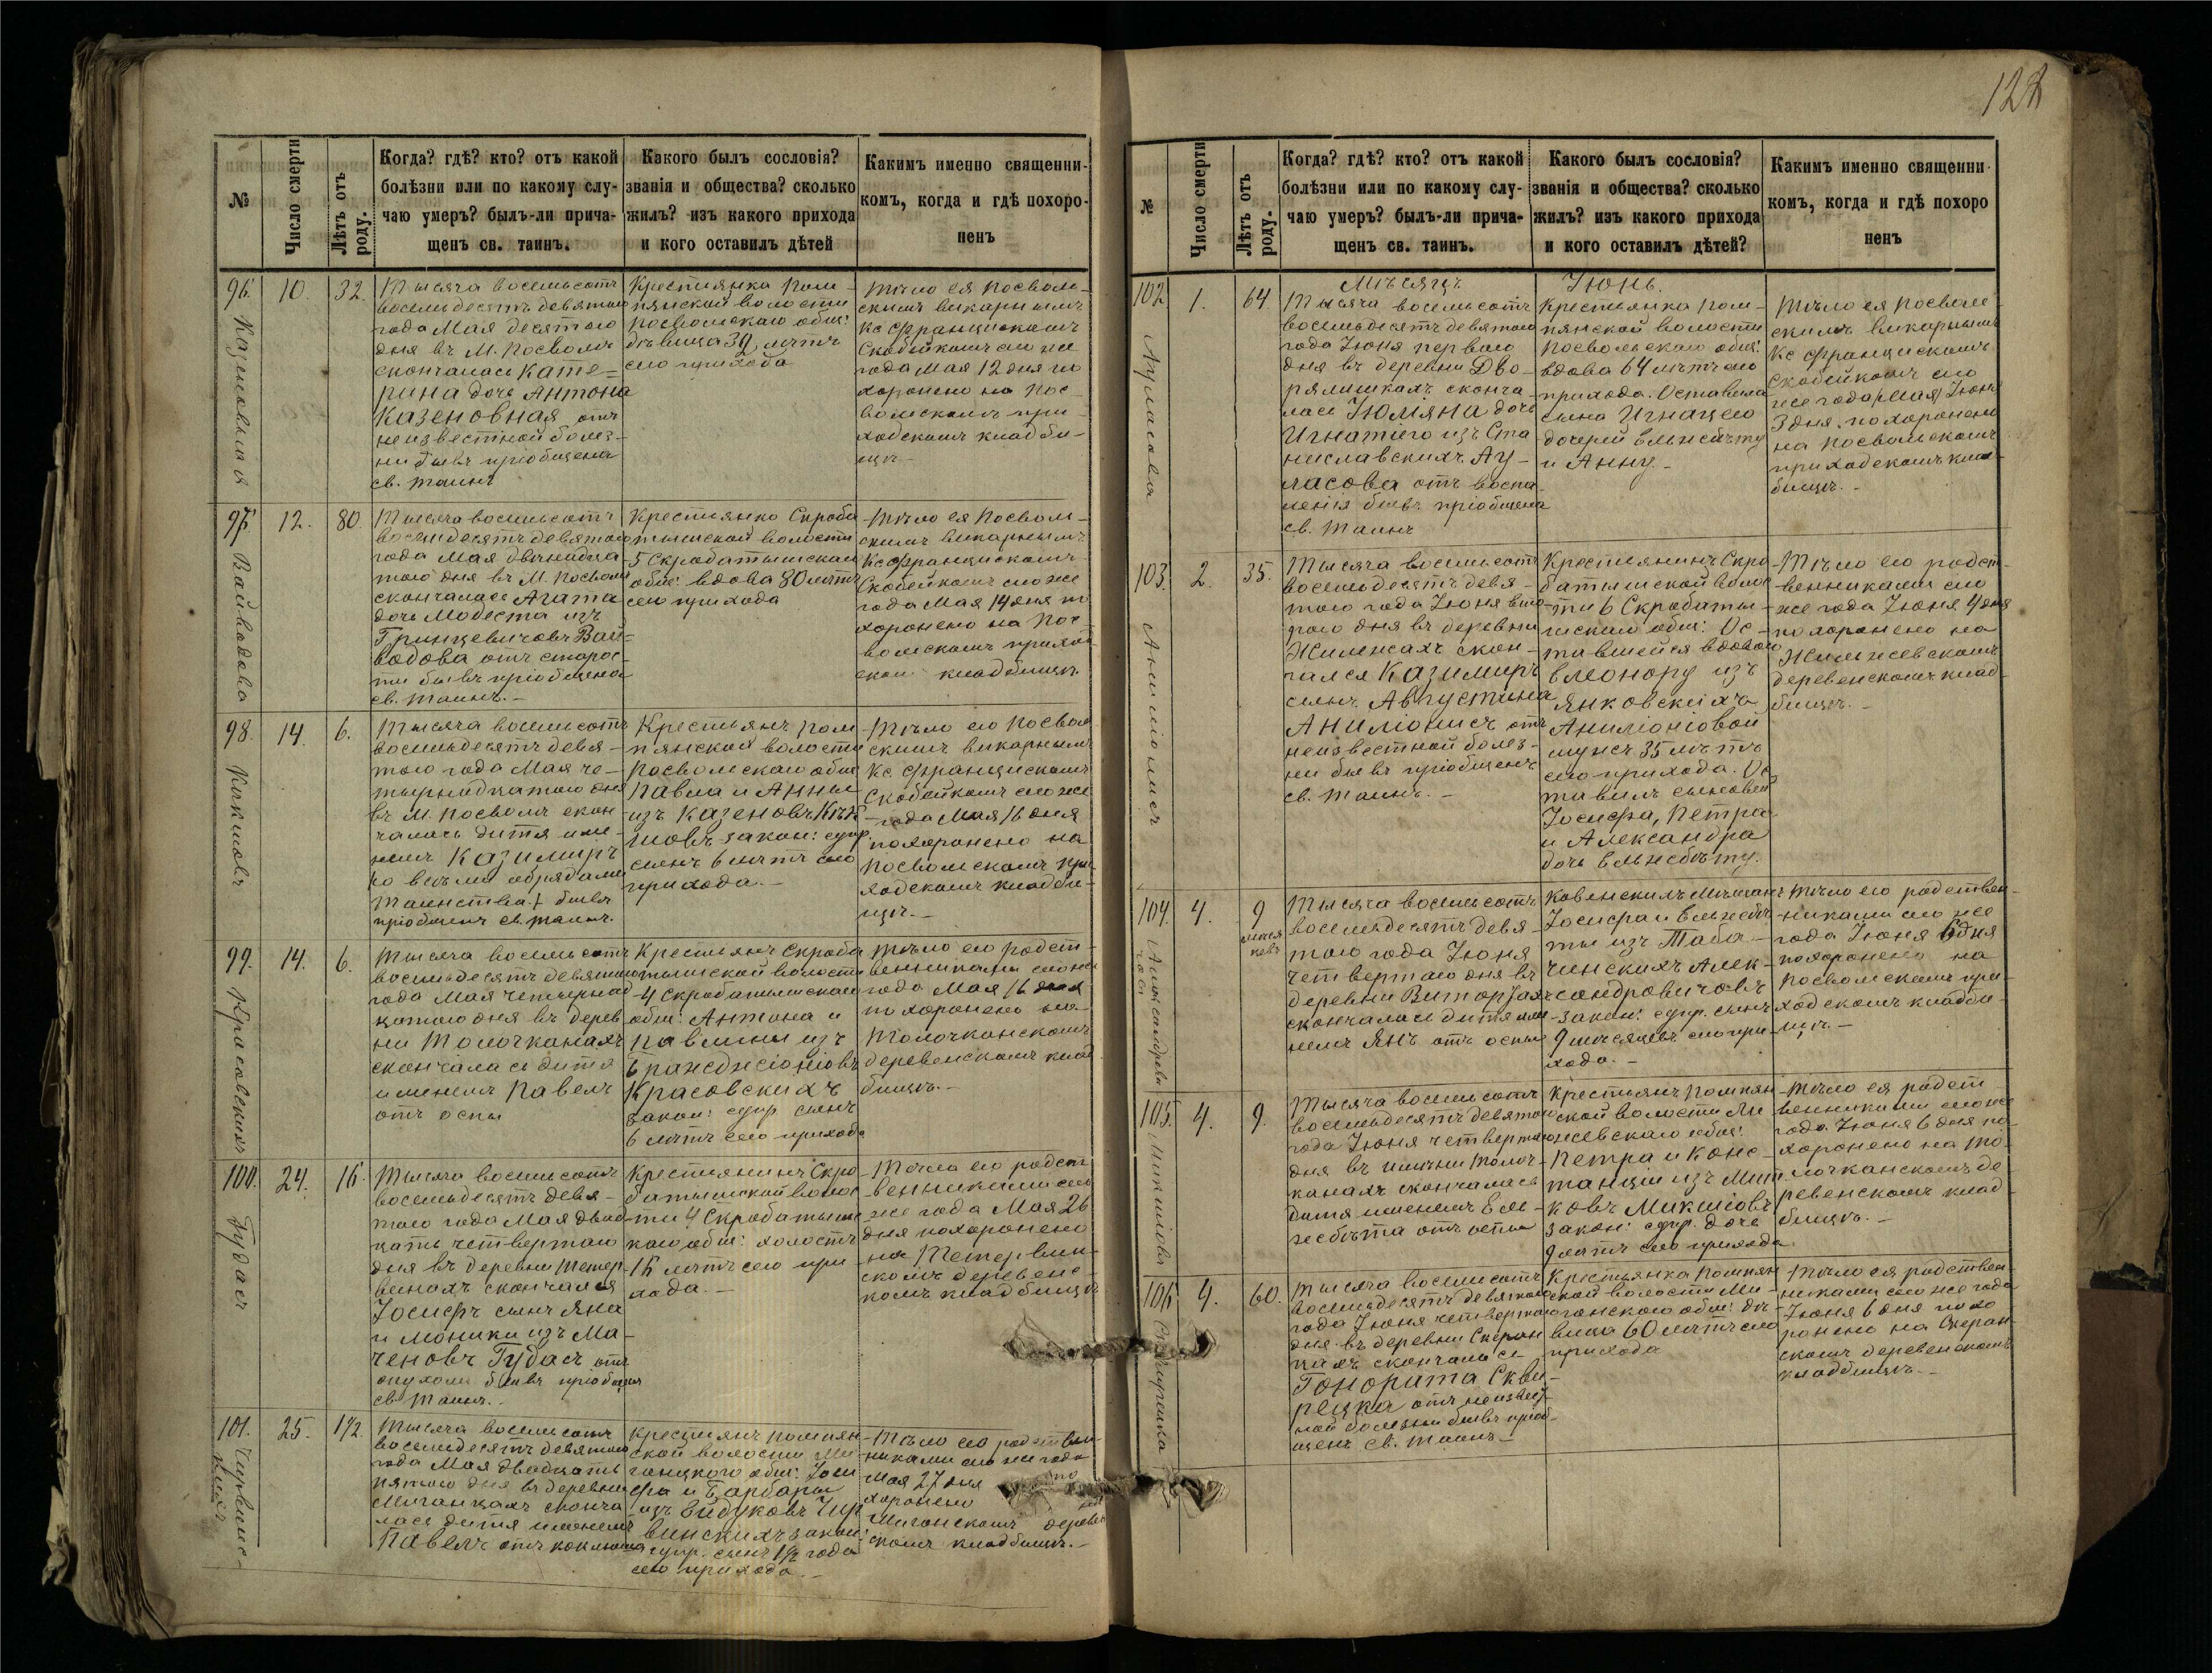 122
№
Число смерти
Лѣтъ отъ роду.
Когда? гдѣ? кто? отъ какой
болѣзни или по какому слу-
чаю умеръ? былъ-ли прича-
щенъ св. таинъ.
Какого былъ сословія?
званія и общества? сколько
жилъ? изъ какого прихода
и кого оставилъ дѣтей
Какимъ именно священни-
комъ, когда и гдѣ похоро-
ненъ
96.
10.
32.
Тысяча восемьсотъ
восемьдесятъ девятого
года Мая десятого
дня въ М. Посволѣ
скончалась Кате=
рина дочь Антона
Казеновная отъ
неизвестной болез-
ни бывъ пріобщена
св. таинъ
Крестьянка Пом-
пянской волости
Посвольскаго общ:
дѣвица 32 лѣтъ
сего прихода
Тѣло ея Посволь-
скимъ викарнымъ
Кс Францискомъ
Скобейкомъ сего же
года Мая 12 дня по
хоронено на Пос-
вольскомъ при-
ходскомъ кладби-
щѣ
97.
Вайводова
12.
80.
Тысяча восемьсотъ
восемьдесятъ девятого
года Мая двѣнадца
того дня въ М. Посволѣ
скончалась Агата
дочь Модеста изъ
Гринцевичовъ Вай=
водова отъ старос-
ти бывъ пріобщена
св. таинъ.-
Крестьянка Скроба
тышской волости
5 Скробатышскаго
общ: вдова 80 лѣтъ
сего прихода
Тѣло ея Посволь-
скимъ викарнымъ
Кс Францискомъ
Скобейкомъ сего же
года Мая 14 дня по
хоронено на Пос-
вольскомъ приход
скомъ кладбищѣ
98.
14.
6.
Тысяча восемьсотъ
восемьдесятъ девя-
того года Мая че-
тырнадцатого дня
въ М. Посволѣ скон
чалось дитя име-
немъ Казимиръ
со всѣми обрядами
таинства. бывъ
пріобщенъ св. таинъ.
Крестьянъ Пом
пянской волости
Посвольскаго общ
Павла и Анны
изъ Казеновъ
закон: супр.
сынъ 6 лѣтъ сего
прихода.-
Тѣло его Посволь
скимъ викарнымъ
Кс. Францискомъ
Скобейкомъ сего же
года Мая 16 дня
похоронено на
Посвольскомъ при
ходскомъ кладби-
щѣ.-
99.
Красовскихъ
14.
6.
Тысяча восемьсотъ
восемьдесятъ девятого
года Мая четырнад
цатого дня въ дерев
ни Толочканахъ
скончалась дитя
именемъ Павелъ
отъ оспы
Крестьянъ Скроба
тышской волости
4 Скробатышскаго
общ: Антона и
Павлины изъ
Красовскихъ
закон: супр сынъ
6 лѣтъ сего прихода
Тѣло его родст-
венниками сего же
года Мая 16 дня
похоронено на
Толочканскомъ
деревенскомъ клад
бищѣ.-
100.
Гудасъ
24.
16.
Тысяча восемьсотъ
восемьдесятъ девя-
того года Мая двад
цать четвертаго
дня въ деревни Тетер
винахъ скончался
Іосифъ сынъ Яна
и Моники изъ Ма-
ченовъ Гудасъ отъ
опухоли бывъ пріобщенъ
св. таинъ.
Крестьянинъ Скро
батышской волос
ти 4 Скробатышс
каго общ: холостъ
16 лѣтъ сего при
хода.-
Тѣло его родст
венниками сего
же года Мая 26
дня похоронено
на Тетервин-
скомъ деревенс-
комъ кладбищѣ
101.
25.
1½.
Тысяча восемьсотъ
восемьдесятъ девятого
года Мая двадцать
пятого дня въ деревни
Миганцахъ сконча
лась дитя именемъ
Павелъ отъ коклюша
Крестьянъ Помпян
ской волости Ми-
ганцкого общ: Іоси
фа и Барбары
изъ Вайдуковъ Чир
винскихъ закон:
супр. сынъ 1½ года
сего прихода.-
Тѣло его родствен-
никами сего же года
Мая 27 дня по
хоронено
Миганскомъ деревен
скомъ кладбищѣ.-
№
Число смерти
Лѣтъ отъ роду.
Когда? гдѣ? кто? отъ какой
болѣзни или по какому слу-
чаю умеръ? былъ-ли прича-
щенъ св. таинъ.
Какого былъ сословія?
званія и общества? сколько
жилъ? изъ какого прихода
и кого оставилъ дѣтей?
Какимъ именно священни
комъ, когда и гдѣ похоро
ненъ
Мѣсяцъ Іюнь.
102
Ауласова
1.
64.
Тысяча восемьсотъ
восемьдесятъ девятого
года Іюня первого
дня въ деревни Дво-
рялишкахъ сконча
лась Юлияна дочь
Игнатіего изъ Ста
ниславскихъ Ау-
ласова отъ воспа
ленія бывъ пріобщена
св. таинъ
Крестьянка Пом-
пянской волости
Посвольскаго общ:
вдова 64 лѣтъ сего
прихода. Оставила
сына Игнацего
дочерей Ельжбѣту
и Анну.-
Тѣло ея Посволь
скимъ викарнымъ
Кс Францискомъ
Скобейкомъ сего
же года (Мая) Іюня
3 дня. похоронено
на Посвольскомъ
приходскомъ клад-
бищѣ.-
103.
Анилюнисъ
2.
35.
Тысяча восемьсотъ
восемьдесятъ девя-
того года Іюня вто
рого дня въ деревни
скон-
чался Казимиръ
сынъ Августина
Анилюнисъ отъ
неизвестной болез-
ни бывъ пріобщенъ
св. таинъ.-
Крестьянинъ Скро
батышской волос
ти 6 Скробаты-
шскаго общ: Ос-
тавшейся вдовою
Елеонору изъ
Янковскихъ
Анилюніовой
мужъ 35 лѣтъ
сего прихода. Ос
тавилъ сыновей
Іосифа, Петра
и Александра
дочь Ельжбѣту.
Тѣло его родст-
венниками сего
же года Іюня 4 дня
похоронено на
деревенскомъ клад
бищѣ.-
104.
4.
9
мѣся
цовъ
Тысяча восемьсотъ
восемьдесятъ девя-
того года Іюня
четвертаго дня въ
деревни
скончалась дитя име
немъ Янъ отъ оспы
Ковенскихъ мѣщанъ
Іосифа и Ельжбѣ
ты изъ Таба-
чинскихъ Алек-
сандровичовъ
закон: супр. сынъ
9 мѣсяцевъ сего при
хода.-
Тѣло его родствен-
никами сего же
года Іюня 6 дня
похоронено на
Посвольскомъ при-
ходскомъ кладби-
щѣ.-
105.
4.
9.
Тысяча восемьсотъ
восемьдесятъ девятого
года Іюня четвертаго
дня въ имѣніи Толоч
канахъ скончалась
дитя именемъ Ель
жбѣта отъ оспы
Крестьянъ Помпян
ской волости
общ:
Петра и Конс-
танціи изъ Мит
ковъ Микшовъ
закон: супр. дочь
9 лѣтъ сего прихода
Тѣло ея родст
венниками сего же
года Іюня 6 дня по
хоронено на То-
лочканскомъ де
ревенскомъ клад
бищѣ.-
106
4.
60.
Тысяча восемьсотъ
восемьдесятъ девятого
года Іюня четвертаго
дня въ деревни Скерон
цахъ скончалась
Гонората Скви-
рецка отъ неизвест
ной болезни бывъ пріоб-
щенъ св. таинъ-
Крестьянка Помпян
ской волости Ми-
ганскаго общ: дѣ-
вица 60 лѣтъ сего
прихода
Тѣло ея родствен-
никами сего же года
Іюня 6 дня похо
ронено на Скерон-
скомъ деревенскомъ
кладбищѣ.-